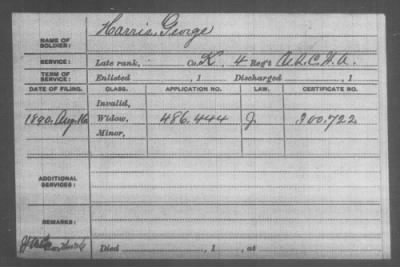 NAME OF SOLDIER: Harris, George
SERVICE: Late rank, Co. K, 4 Reg't U.S.C.H.A.
TERM OF SERVICE: Enlisted , 1 Discharged , 1
DATE OF FILING. CLASS. APPLICATION NO. LAW. CERTIFICATE NO.
Invalid,
1890. Aug. 16 Widow, 486.444 J. 300.722
Minor,
ADDITIONAL SERVICES:
REMARKS:
Died , 1 , at